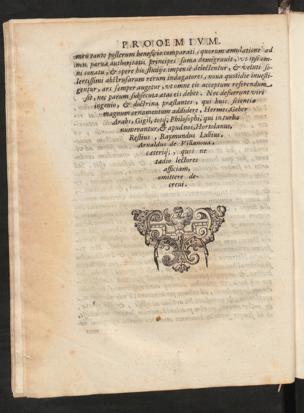 PROOEMIVM.
meri tanto posterum beneficio comparati, quorum aemulatione ad
non parua authoritatis principes fama demigrauit, vt insano
ni conatu, & opere his studijs impense delectentur, & veluti so-
lertissimi abstrusarum rerum indagatores, noua quotidie inuesti-
gentur, ars semper augetur, vt omne ijs acceptum referendum
sit, nec parum subsecuta aetas eis debet. Nec defuerunt viri
ingenio, & doctrina praestantes, qui huic scientiae
magnum ornamentum addidere, Hermes, Geber
Arabs, Gigil, totq; Philosophi, qui in turba
numerantur, & apud nos, Hortolanus,
Rosinus, Raymundus Lullius,
Arnaldus de Villanoua,
caeteriq;, quos ne
taedio lectores
afficiam,
omittere de-
creui.